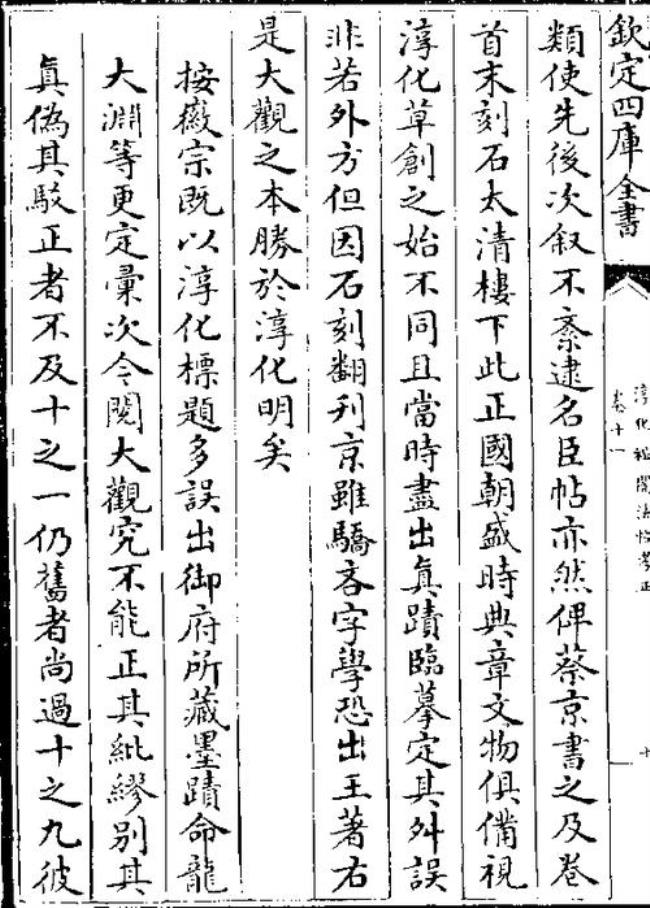 欽定四庫全書
淳化祕閣法帖考正
卷十一
十
類使先後次叙不紊逮名臣帖亦然俾蔡京書之及卷
首末刻石太清樓下此正國朝盛時典章文物俱備視
淳化草創之始不同且當時盡出真蹟臨摹定其舛誤
非若外方但因石刻翻刋京雖驕吝字學恐出王著右
是大觀之本勝於淳化明矣
按徽宗既以淳化標題多誤出御府所藏墨蹟命龍
大淵等更定彚次今閱大觀究不能正其紕繆别其
真偽其駁正者不及十之一仍舊者尚過十之九彼